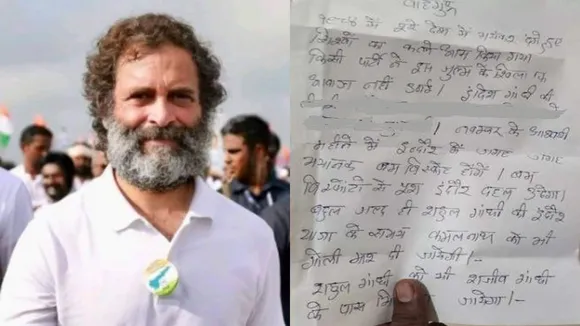 वाहेगुरु
1984 में पूरे देश में भयंकर दंगे हुए
सिखों का कत्ले आम किया गया
किसी पार्टी ने इस जुल्म के खिलाफ
आवाज नहीं उठाई। इंदिरा गांधी
। नवम्बर के आखरी
महीने में इंदौर में जगह जगह
भयानक बम विस्फोट होंगे। बम
विस्फोटों से पूरा इंदौर दहल उठेगा।
बहुत जल्द ही राहुल गांधी की इंदौर
यात्रा के समय कमलनाथ को भी
गोली मार दी जायेगी।-
राहुल गांधी को भी राजीव गांधी
के पास जायेगा।-